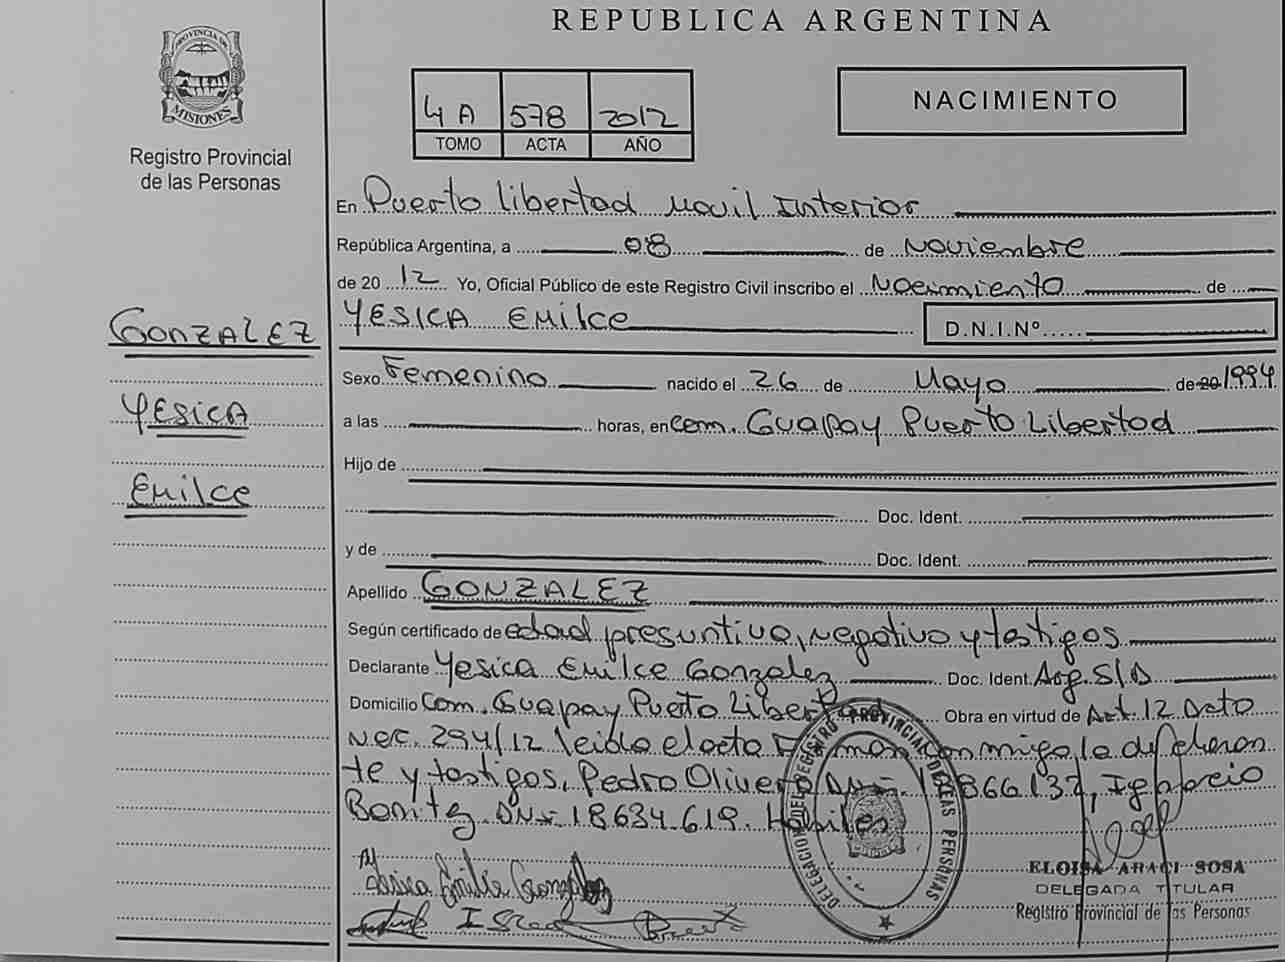 REPUBLICA ARGENTINA
PROVINCIA DE
MISIONES
Registro Provincial
de las Personas
4A 578 2012
TOMO ACTA AÑO
NACIMIENTO
En Puerto Libertad Movil Interior
República Argentina, a 08 de Noviembre
de 20 12 Yo, Oficial Público de este Registro Civil inscribo el Nacimiento de
YESICA EMILCE D.N.I.Nº
GONZALEZ
YESICA
Emilce
Sexo Femenino nacido el 26 de Mayo de 20 1994
a las horas, en com. Guapay Puerto Libertad
Hijo de
Doc. Ident.
y de Doc. Ident.
Apellido GONZALEZ
Según certificado de edad presuntiva, negativo y testigos
Declarante Yesica Emilce Gonzalez Doc. Ident. Arg. S/D
Domicilio Com. Guapay Puerto Libertad Obra en virtud de Art. 12 Dcto
Nec. 294/12 leida el acta Firman conmigo la declaran
te y testigos, Pedro Olivera 866137, Ignacio
Benitez DNI 18634.619. Habiles
Yesica Emilce Gonzalez
DELEGACION DEL REGISTRO PROVINCIAL DE LAS PERSONAS
ELOISA ARACI SOSA
DELEGADA TITULAR
Registro Provincial de las Personas